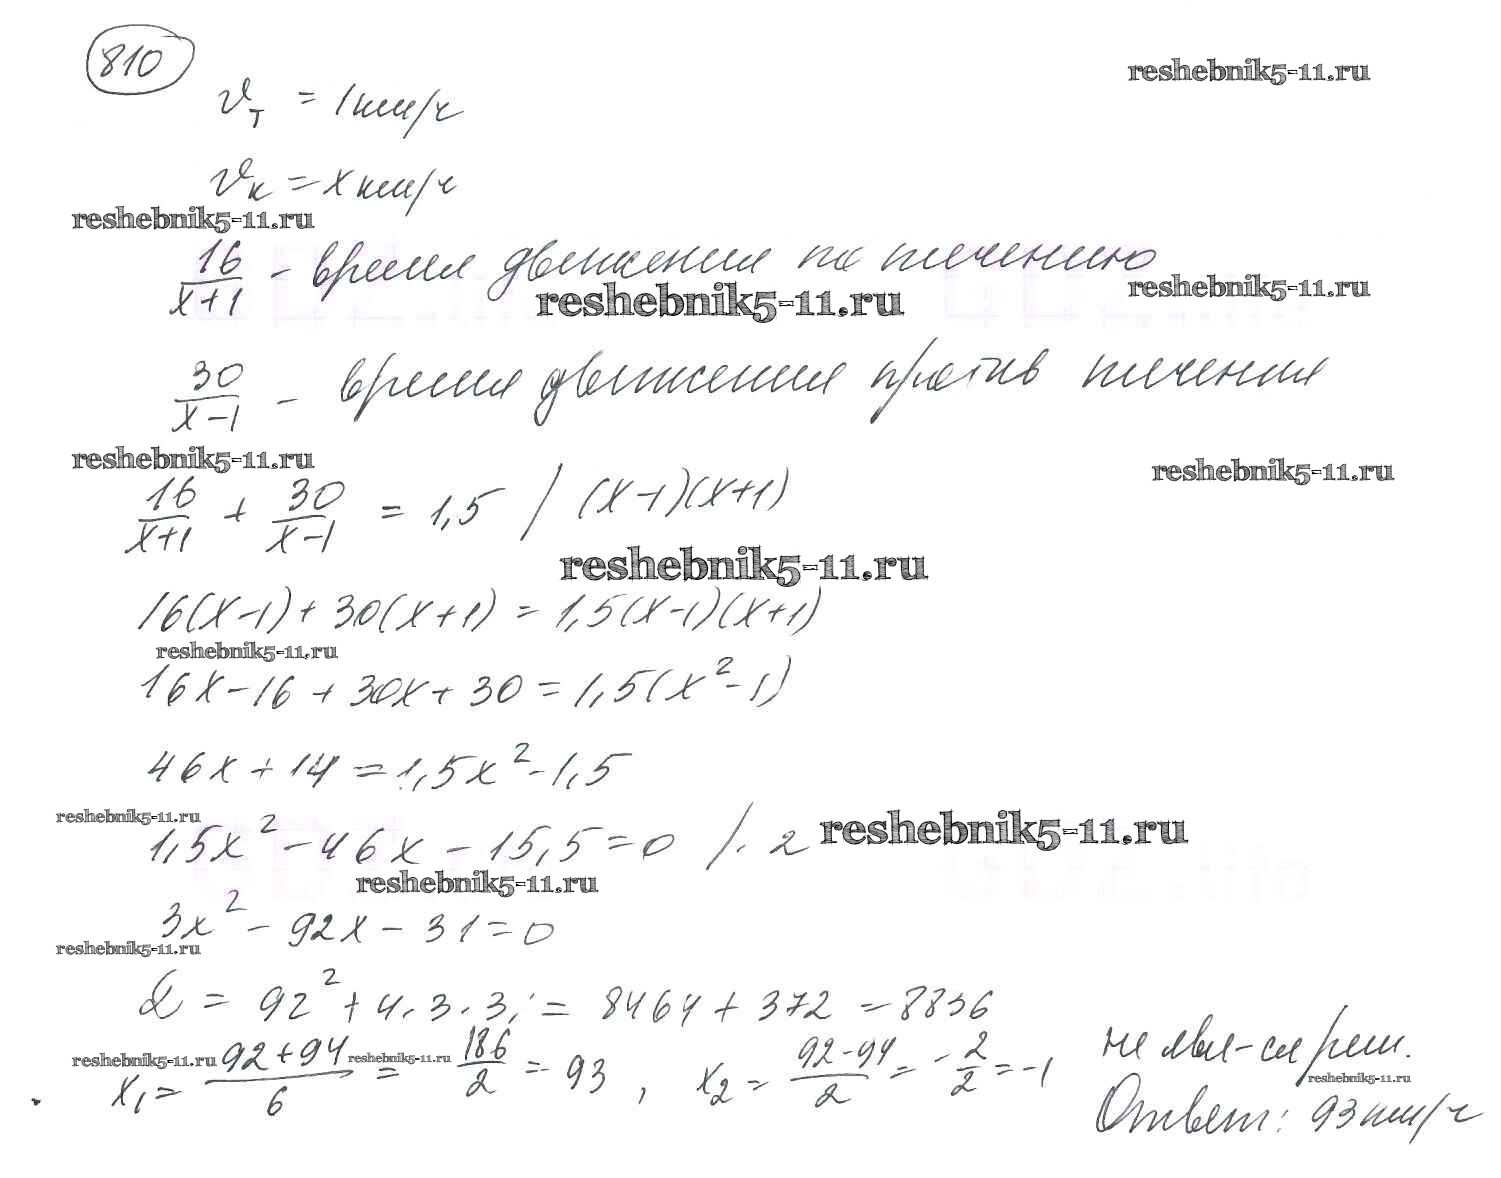 810
reshebnik5-11.ru
vт = 1 км/ч
vк = x км/ч
reshebnik5-11.ru
16/(x+1) - время движения по течению
reshebnik5-11.ru
reshebnik5-11.ru
30/(x-1) - время движения против течения
reshebnik5-11.ru
reshebnik5-11.ru
16/(x+1) + 30/(x-1) = 1,5 / (x-1)(x+1)
reshebnik5-11.ru
16(x-1) + 30(x+1) = 1,5(x-1)(x+1)
reshebnik5-11.ru
16x - 16 + 30x + 30 = 1,5(x² - 1)
46x + 14 = 1,5x² - 1,5
reshebnik5-11.ru
1,5x² - 46x - 15,5 = 0 /· 2
reshebnik5-11.ru
reshebnik5-11.ru
3x² - 92x - 31 = 0
reshebnik5-11.ru
D = 92² + 4·3·31 = 8464 + 372 = 8836
reshebnik5-11.ru
reshebnik5-11.ru
x₁ = (92+94)/6 = 186/2 = 93, x₂ = (92-94)/2 = -2/2 = -1 не явл-ся реш.
reshebnik5-11.ru
Ответ: 93 км/ч